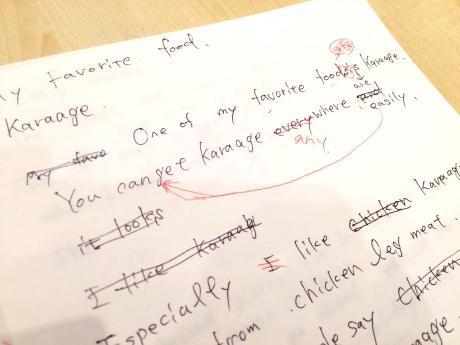 My favorite food.
Karaage.
My fave One of my favorite foods is Karaage.
are
You can get karaage everywhere and easily.
any
it looks
I like Karaag
Especially I like chicken Karaage
from chicken leg meat.
say Chicken